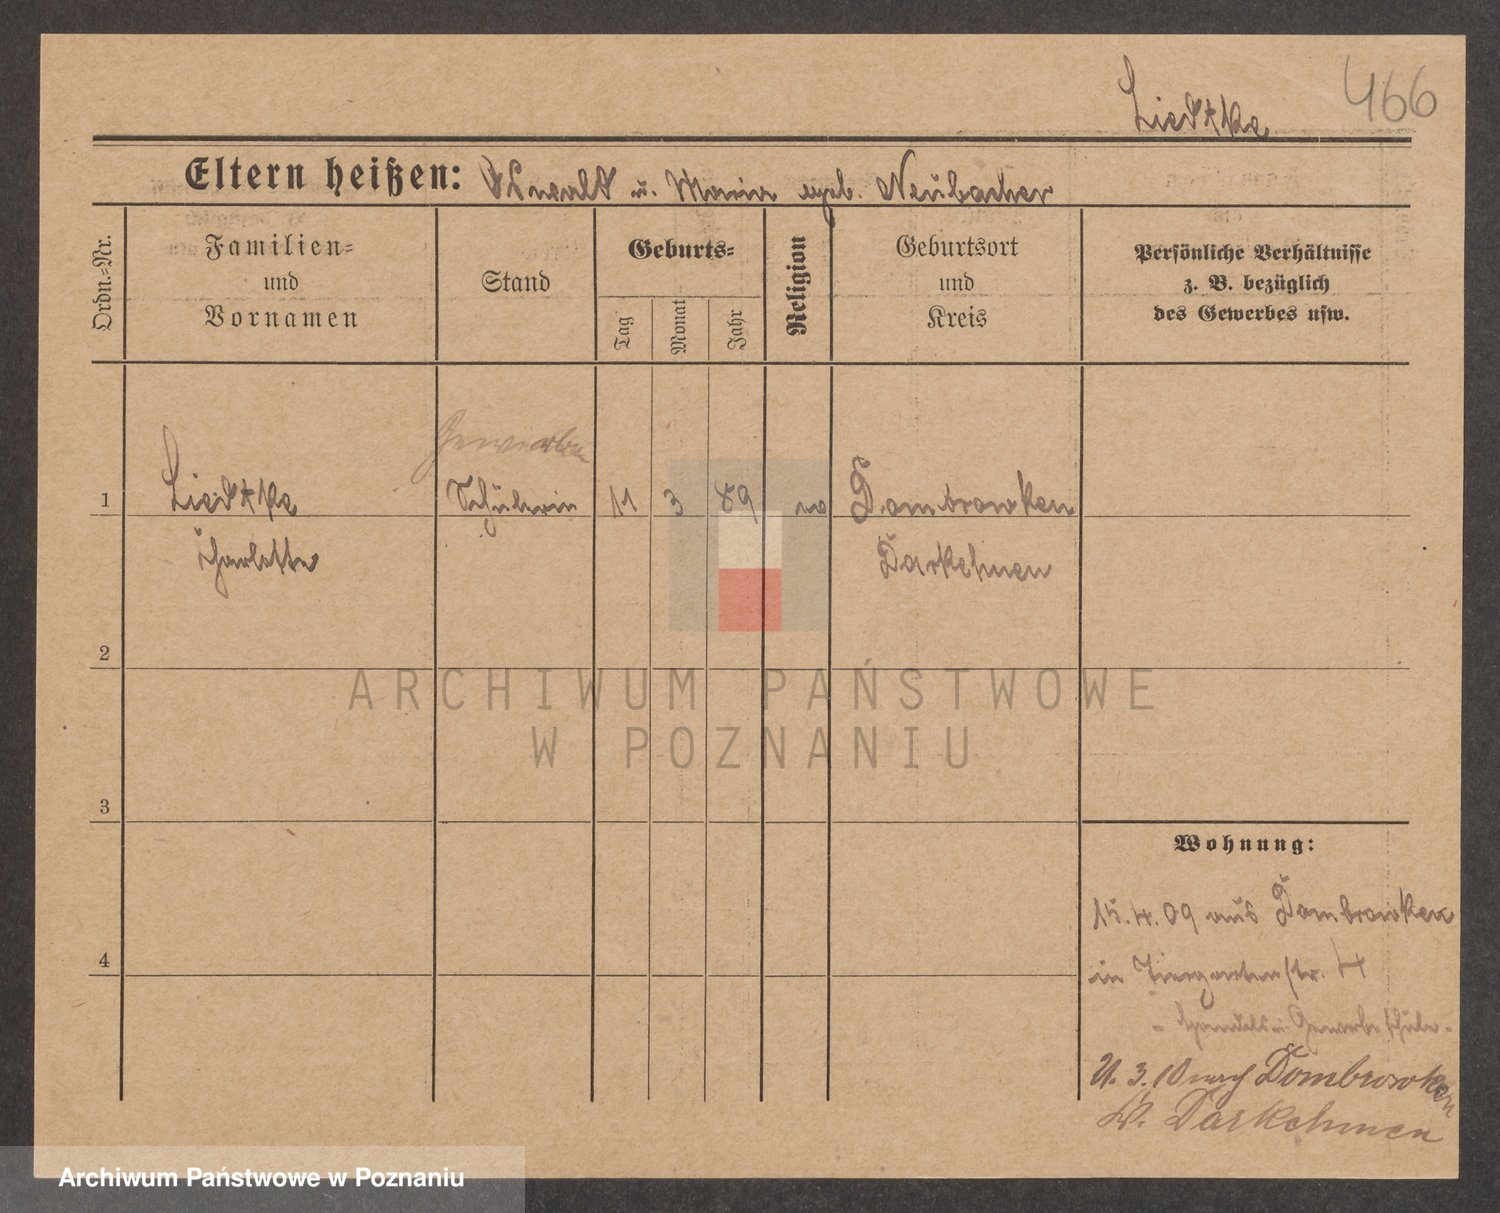 Liedtke 466
Eltern heißen: Ewald u. Maria geb. Neubacher
Ordn.=Nr.
Familien=
und
Vornamen
Stand
Geburts=
Tag
Monat
Jahr
Religion
Geburtsort
und
Kreis
Persönliche Verhältnisse
z. B. bezüglich
des Gewerbes usw.
Gewerbe
1 Liedtke Schülerin 11 3 89 ev Dombrowken
Charlotte Darkehmen
2
3
4
Wohnung:
15.4.09 aus Dombrowken
in Tiergartenstr. 4
- Handels u. Gewerbeschule -
3.10 nach Dombrowken
Kr. Darkehmen
ARCHIWUM PAŃSTWOWE
W POZNANIU
Archiwum Państwowe w Poznaniu